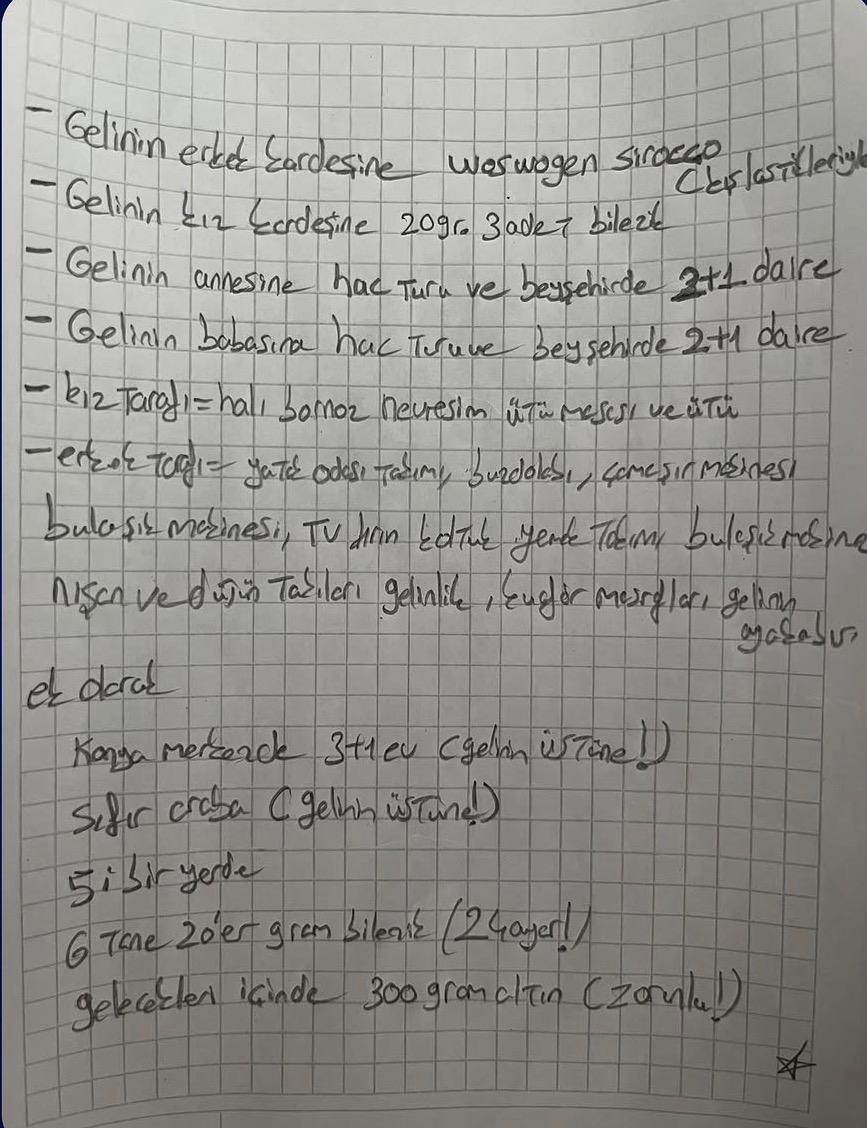 - Gelinin erkek kardeşine woswogen sirocco
(kışlastikleriyle
- Gelinin kız kardeşine 20gr. 3 adet bilezik
- Gelinin annesine hac turu ve beyşehirde 2+1 daire
- Gelinin babasına hac turu ve beyşehirde 2+1 daire
- kız Tarafı = halı bornoz nevresim ütü masası ve ütü
- erkek tarafı = yatak odası takımı, buzdolabı, çamaşır makinesi
bulaşık makinesi, TV koltuk yemek takımı bulaşık makine
nişan ve düğün takıları gelinlik, kuaför masrafları gelinin
ayakkabısı
ek olarak
Konya merkezde 3+1 ev (gelinin üstüne!)
Sıfır araba (gelinin üstüne!)
5i bir yerde
6 Tane 20'er gram bilezik (24 ayar!)
gelecekleri içinde 300 gram altın (zorunlu!)